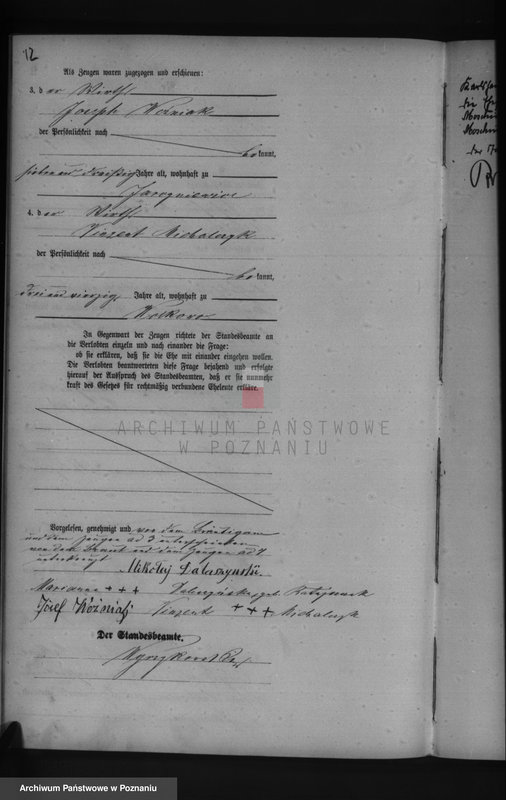 12
Als Zeugen waren zugezogen und erschienen:
3. der Wirth
Joseph Wozniak
der Persönlichkeit nach
bekannt,
siebenunddreißig Jahre alt, wohnhaft zu
4. der Wirth
Vinzent Michalczyk
der Persönlichkeit nach
bekannt,
dreiundvierzig Jahre alt, wohnhaft zu
In Gegenwart der Zeugen richtete der Standesbeamte an
die Verlobten einzeln und nach einander die Frage:
ob sie erklären, daß sie die Ehe mit einander eingehen wollen.
Die Verlobten beantworteten diese Frage bejahend und erfolgte
hierauf der Ausspruch des Standesbeamten, daß er sie nunmehr
kraft des Gesetzes für rechtmäßig verbundene Eheleute erkläre.
ARCHIWUM PAŃSTWOWE
W POZNANIU
Vorgelesen, genehmigt und von dem Bräutigam
und dem Zeugen ad 3 unterschrieben
von der Braut und dem Zeugen ad 4
unterkreuzt
Mikołaj
Marianna + + +
Józef Woźniak Vinzent + + + Michalczyk
Der Standesbeamte.
Archiwum Państwowe w Poznaniu